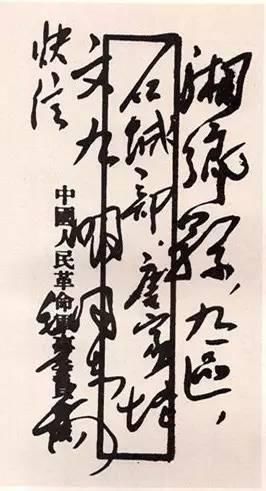 湘鄉縣,九區,
石城部.唐家圫
文九明同志
快信
中國人民革命軍事委員會